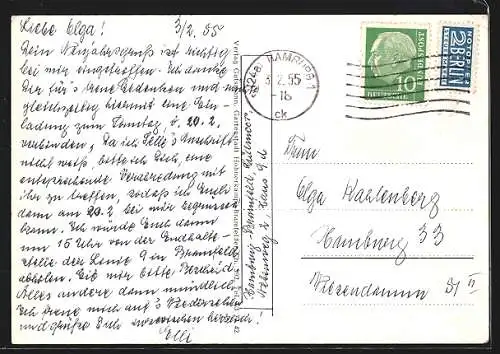 Liebe Elga! 3/2. 55
Dein Neujahrsgruß ist richtig
bei mir eingetroffen. Ich danke
Dir für's liebe Gedenken und
gleichzeitig hiermit eine Ein-
ladung zum Sonntag, d. 20.2.
verbinden. Da ich Anschrift
nicht weiß, bitte ich Dich, eine
entsprechende Verabredung mit
ihr zu treffen, sodaß ich Euch
dann am 20.2 bei mir begrüssen
kann. Ich würde Euch dann
um 15 Uhr von der Endhalte-
stelle der Linie 9 in Bramfeld
abholen. Gib mir bitte Bescheid
Alles andere dann mündlich.
Ich freue mich auf's Wiedersehen
und grüße Dich herzlich!
Elli
Verlag Gebr.
Hamburg-Bramfeld,
2 Haus 9d
HAMBURG 1
3.2.55
-18
ck
DEUTSCHE BUNDESPOST
10
NOTOPFER
2 BERLIN
STEUERMARKE
Frau
Elga Kahlenberg
Hamburg 33
Wiesendamm 51 II